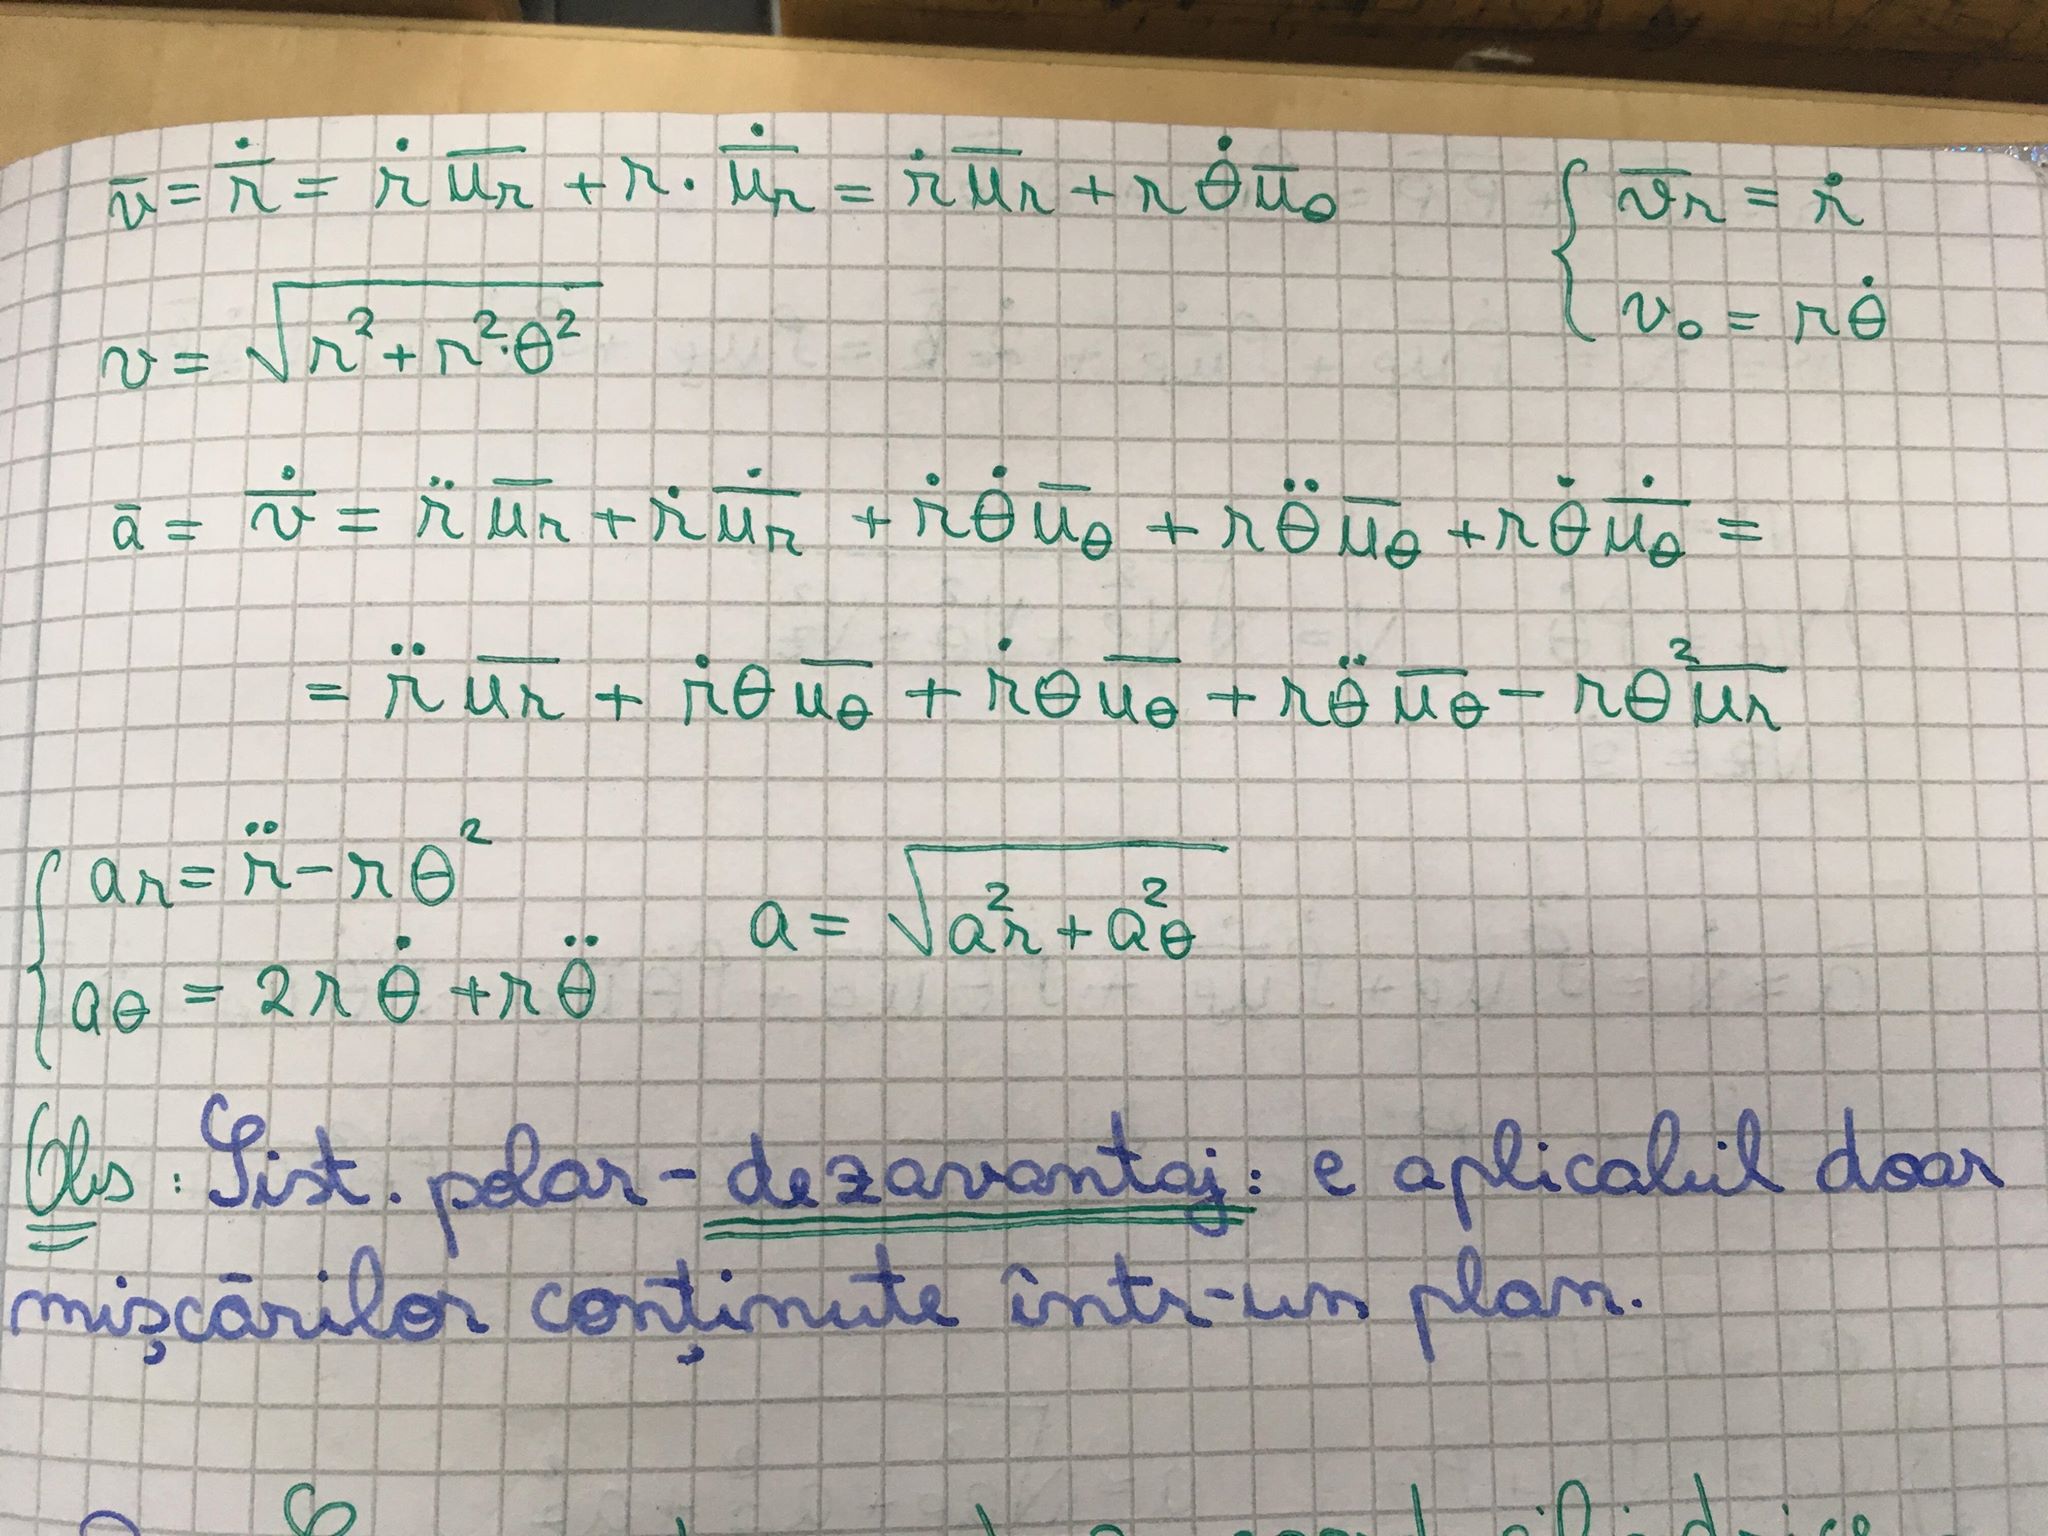 v̅ = ṙ̅ = ṙ u̅r + r · u̅̇r = ṙ u̅r + r θ̇ u̅o { v̅r = ṙ
v = √(r² + r²·θ²) vo = r θ̇
a̅ = v̅̇ = r̈ u̅r + ṙ u̅̇r + ṙ θ̇ u̅θ + r θ̈ u̅θ + r θ̇ u̅̇θ =
= r̈ u̅r + ṙ θ u̅θ + ṙ θ u̅θ + r θ̈ u̅θ − r θ² u̅r
{ ar = r̈ − r θ² a = √(a²r + a²θ)
aθ = 2 r θ̇ + r θ̈
Obs : Sist. polar - dezavantaj : e aplicabil doar
mișcărilor conținute într-un plan.